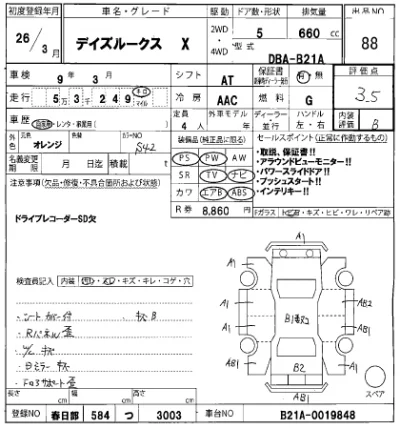 初度登録年月 車名・グレード 駆動 ドア数・形状 排気量 出品NO
26/3月 デイズルークス X 2WD・4WD 5 660cc 88
型式 DBA-B21A
車検 9年 3月 シフト AT 保証書 有・無 評価点 3.5
走行 5万3千249 キロ マイル 冷房 AAC 燃料 G
車歴 自家用・レンタ・事業用( ) 定員 4人 外車モデル 年 ディーラー・並行 ハンドル 左・右 内装評価 B
外色 元色 オレンジ カラーNO S42
装備品(純正品に限る) セールスポイント(正常に作動するもの)
名義変更期限 月 日迄 積載 t
PS PW AW
SR TV ナビ
カワ エアB ABS
・取説、保証書!!
・アラウンドビューモニター!!
・パワースライドドア!!
・プッシュスタート!!
・インテリキー!!
注意事項(欠品・修復・不具合箇所および状態)
R券 8,860円
ガラス
ドライブレコーダーSD欠
検査員記入 内装
・シートカバー付
・Rパネル歪
・ドミラー キズ
A1
A1 A1
A1 AB2
AB1 AB1
B2
AB1
スペア
長さ cm 幅 cm 高さ cm
登録NO 春日部 584 つ 3003 車台NO B21A-0019848